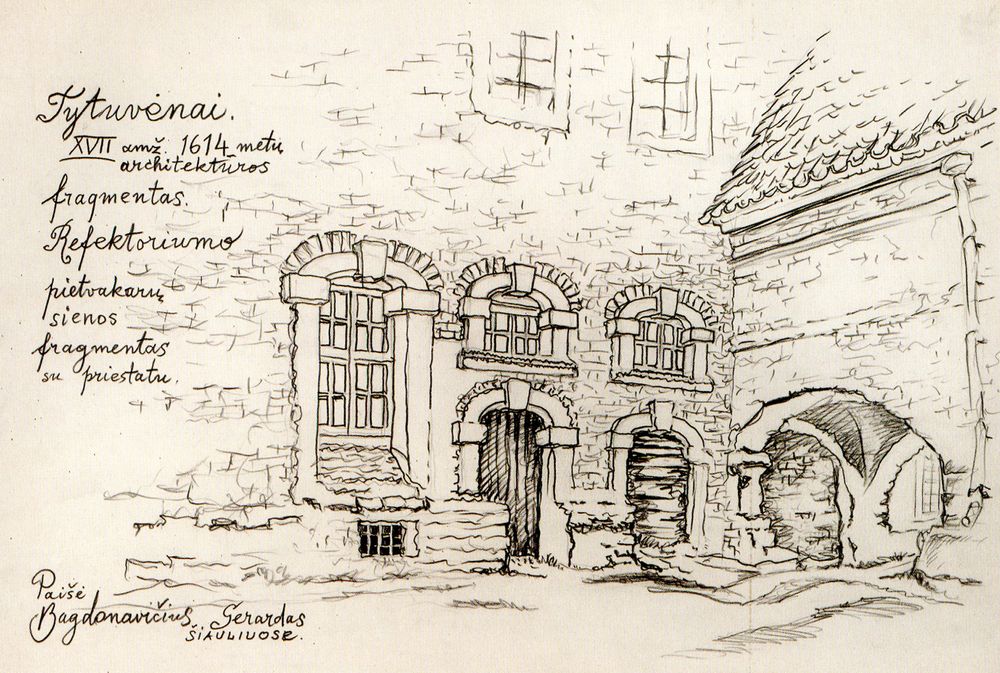 Tytuvėnai.
XVII amž. 1614 metų
architektūros
fragmentas.
Refektoriumo
pietvakarų
sienos
fragmentas
su priestatu.
Paišė
Bagdonavičius Gerardas
ŠIAULIUOSE.